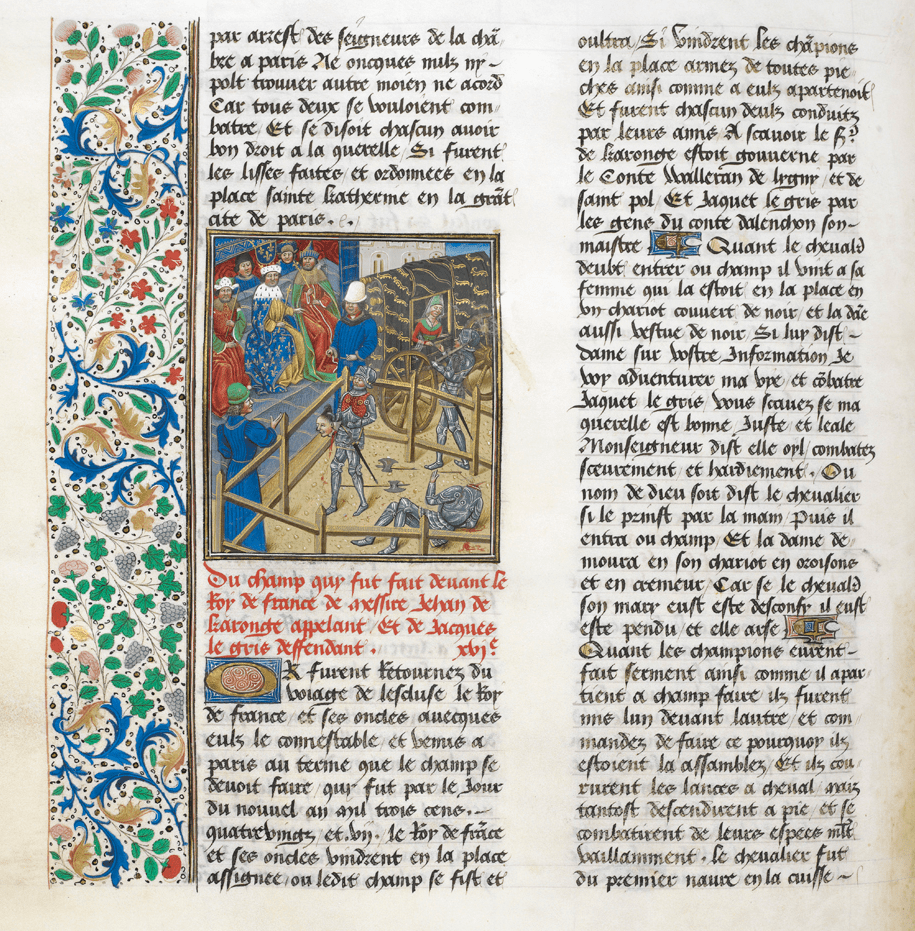 par arrest des seigneurs de la chã
bre a paris Ne oncques nulz ny
polt trouver autre moien ne acord
Car tous deux se vouloient com
batre / Et se disoit chascun avoir
bon droit a la querelle / Si furent
les lisses faites et ordonnees en la
place sainte katherine en la grãt
cite de paris .
Du champ quy fut fait devant le
Roy de france de messire Jehan de
karonge appelant / Et de Jacques
le gris deffendant . xvjᵉ
R furent Retournez du
voiage de lescluse le Roy
de france / et ses oncles avecques
eulz le connestable / et venus a
paris au terme que le champ se
devoit faire / quy fut par le Jour
du nouvel an mil trois cens .
quatrevingz et vij . le Roy de frãce
et ses oncles vindrent en la place
assignee / ou ledit champ se fist et
oultra / Si vindrent les chãpions
en la place armez de toutes pie
ches ainsi comme a eulz apartenoit
Et furent chascun deulz conduitz
par leurs amis A scavoir le sʳ
de karonge estoit gouverne par
le Conte walleran de lygny / et de
saint pol / Et Jaquet le gris par
les gens du conte dalenchon son
maistre Quant le chevalr
deubt entrer ou champ il vint a sa
femme qui la estoit en la place en
vn chariot couvert de noir / et la dãe
aussi vestue de noir / Si luy dist
dame sur vostre Information Je
voy adventurer ma vye / et cõbatre
Jaquet le gris / vous scavez se ma
querelle est bonne Juste / et leale
Monseigneur dist elle oyl / combatez
sceurement / et hardiement . Ou
nom de dieu soit dist le chevalier
si le prinst par la main / Puis il
entra ou champ / Et la dame de
moura en son chariot en oroisons
et en cremeur / Car se le chevalr
son mary eust este desconfy il eust
este pendu / et elle arse
Quant les champions eurent
fait serment ainsi comme il apar
tient a champ faire ilz furent
mis lun devant lautre / et com
mandez de faire ce pourquoy ilz
estoient la assamblez / Et ilz cou
rurent les lances a cheval / mais
tantost descendirent a pie / et se
combatirent de leurs espees mlt
vaillamment . le chevalier fut
du premier navre en la cuisse